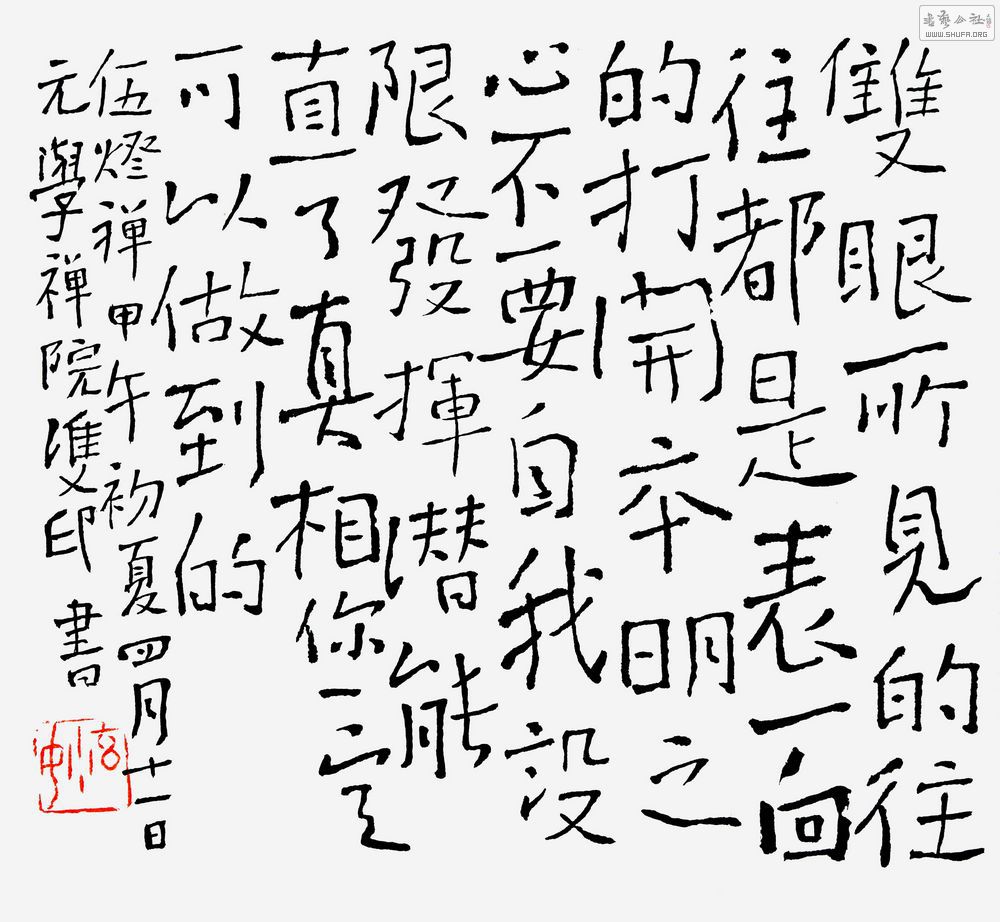 書藝公社
WWW.SHUFA.ORG
雙眼所見的往
往都是表面
的打開本明之
心不要自我設
限發揮潛能
直了真相你一定
可以做到的
伍燈禅甲午初夏四月十一日
元學禅院雙印書